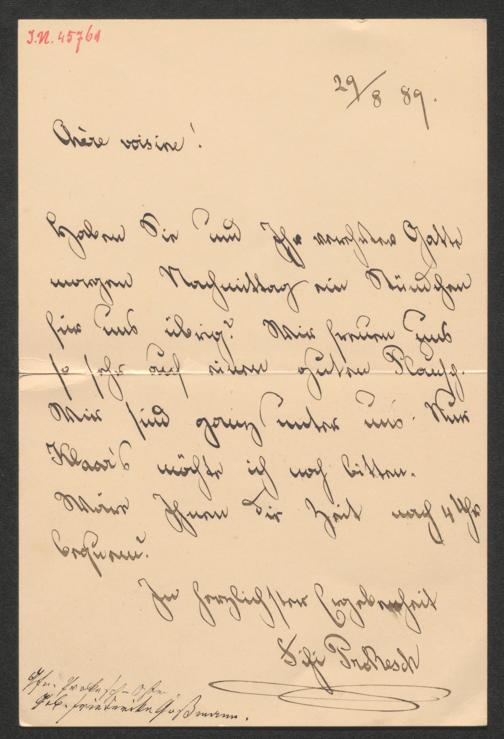 I.N. 45761
29/8 89.
Chère voisine!
Haben Sie und Ihr verehrter Gatte
morgen Nachmittag ein Stündchen
für uns übrig? Wir freuen uns
so sehr auf einen guten Plausch.
Wir sind ganz unter uns. Nur
Klaar's möchte ich noch bitten.
Wäre Ihnen die Zeit nach 4 Uhr
bequem?
In herzlichster Ergebenheit
Prokesch
Gfn. Prokesch-Osten
geb. Friederike Goßmann.